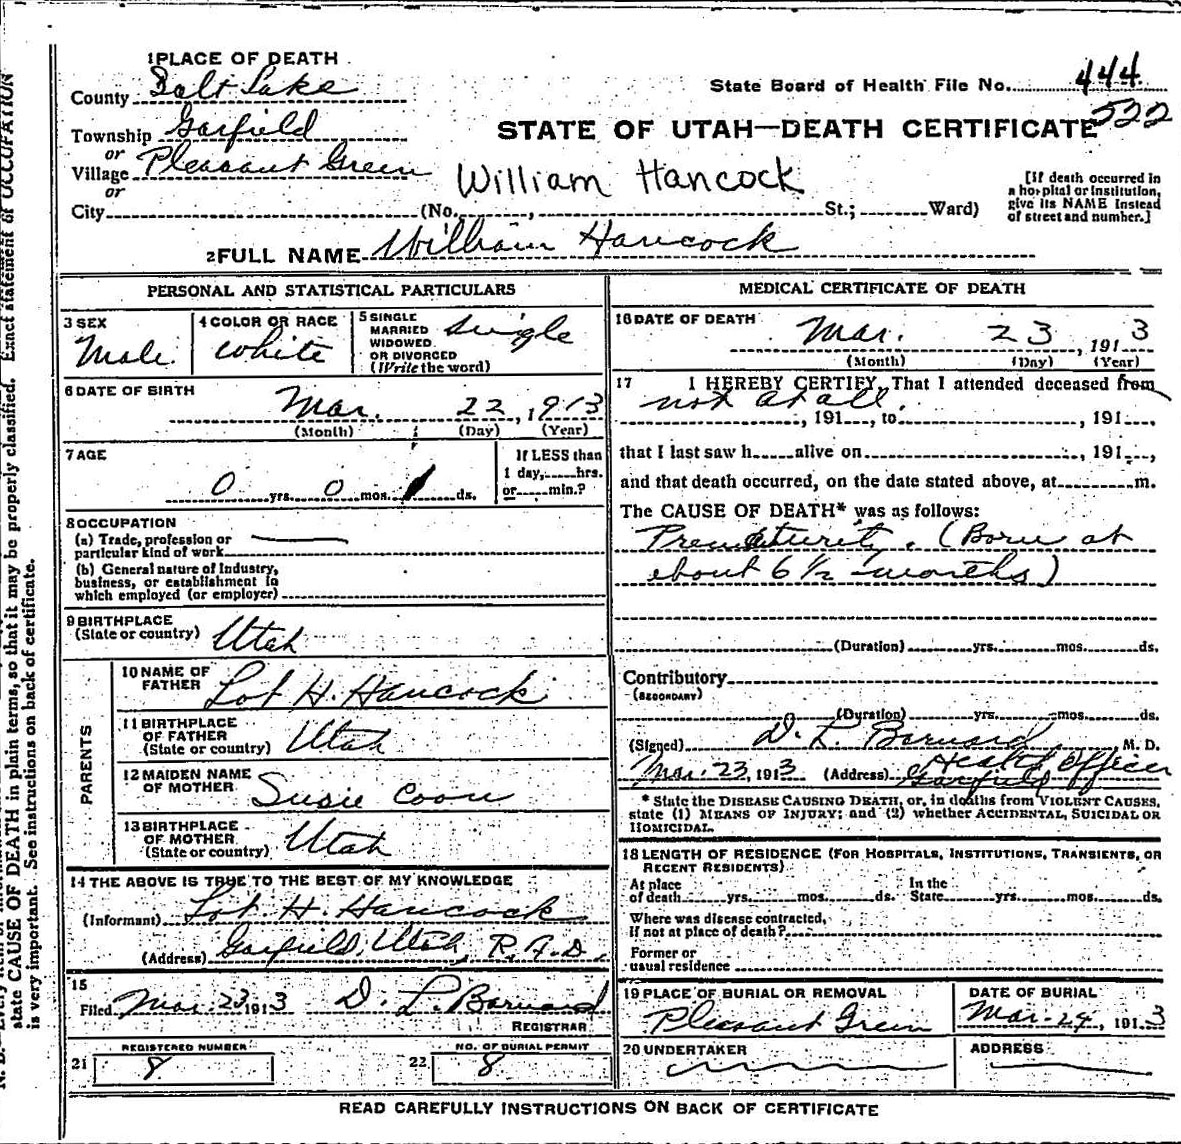 1 PLACE OF DEATH
County Salt Lake
State Board of Health File No. 444
522
Township Garfield
or
Village Pleasant Green
or
STATE OF UTAH—DEATH CERTIFICATE
William Hancock
City (No. , St.; Ward)
[If death occurred in
a hospital or institution,
give its NAME instead
of street and number.]
2 FULL NAME William Hancock
PERSONAL AND STATISTICAL PARTICULARS
3 SEX
Male
4 COLOR OR RACE
White
5 SINGLE
MARRIED
WIDOWED
OR DIVORCED
(Write the word)
Single
6 DATE OF BIRTH
Mar. 22, 1913
(Month) (Day) (Year)
7 AGE
0 yrs. 0 mos. 1 ds.
If LESS than
1 day, hrs.
or min.?
8 OCCUPATION
(a) Trade, profession or
particular kind of work
(b) General nature of Industry,
business, or establishment in
which employed (or employer)
9 BIRTHPLACE
(State or country) Utah
PARENTS
10 NAME OF
FATHER Lot H. Hancock
11 BIRTHPLACE
OF FATHER
(State or country) Utah
12 MAIDEN NAME
OF MOTHER Susie Coon
13 BIRTHPLACE
OF MOTHER
(State or country) Utah
14 THE ABOVE IS TRUE TO THE BEST OF MY KNOWLEDGE
(Informant) Lot H. Hancock
(Address) Garfield, Utah, R.F.D.
15
Filed Mar. 23 1913 D. L. Barnard
REGISTRAR
REGISTERED NUMBER
21 8
NO. OF BURIAL PERMIT
22 8
MEDICAL CERTIFICATE OF DEATH
16 DATE OF DEATH
Mar. 23, 1913
(Month) (Day) (Year)
17 I HEREBY CERTIFY, That I attended deceased from
not at all.
, 191 , to , 191 ,
that I last saw h alive on , 191 ,
and that death occurred, on the date stated above, at m.
The CAUSE OF DEATH* was as follows:
Prematurity. (Born at
about 6 1/2 months)
(Duration) yrs. mos. ds.
Contributory
(SECONDARY)
(Duration) yrs. mos. ds.
(Signed) D. L. Barnard, M. D.
Health Officer
Mar. 23, 1913 (Address) Garfield
* State the DISEASE CAUSING DEATH, or, in deaths from VIOLENT CAUSES,
state (1) MEANS OF INJURY; and (2) whether ACCIDENTAL, SUICIDAL OR
HOMICIDAL.
18 LENGTH OF RESIDENCE (FOR HOSPITALS, INSTITUTIONS, TRANSIENTS, OR
RECENT RESIDENTS)
At place
of death yrs. mos. ds.
In the
State yrs. mos. ds.
Where was disease contracted,
If not at place of death?
Former or
usual residence
19 PLACE OF BURIAL OR REMOVAL
Pleasant Green
DATE OF BURIAL
Mar. 24, 1913
20 UNDERTAKER
ADDRESS
READ CAREFULLY INSTRUCTIONS ON BACK OF CERTIFICATE
state CAUSE OF DEATH in plain terms, so that it may be properly classified. Exact statement of OCCUPATION
is very important. See instructions on back of certificate.